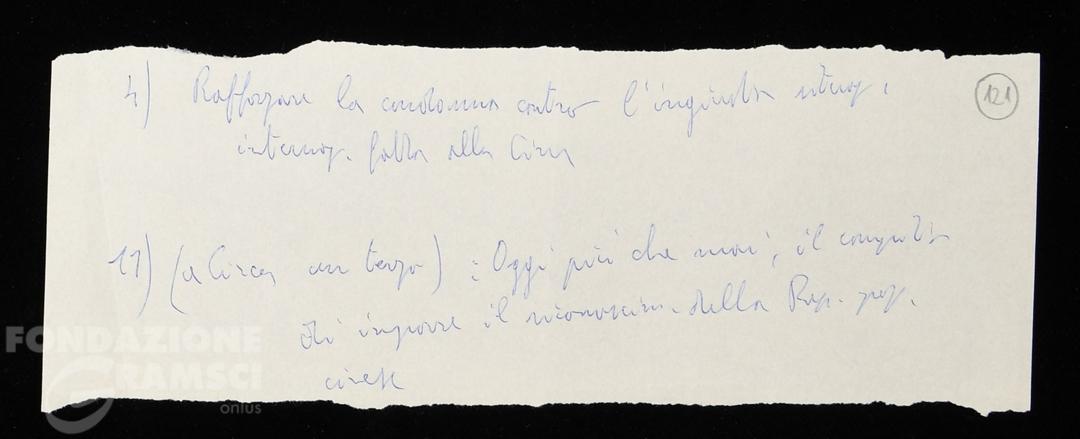 4) Rafforzare la condanna contro l'ingiusta
internaz. fatta alla Cina
121
11) (a circa un terzo) : Oggi più che mai, il compito
di imporre il riconoscim. della Rep. pop.
cinese
FONDAZIONE
GRAMSCI
onlus